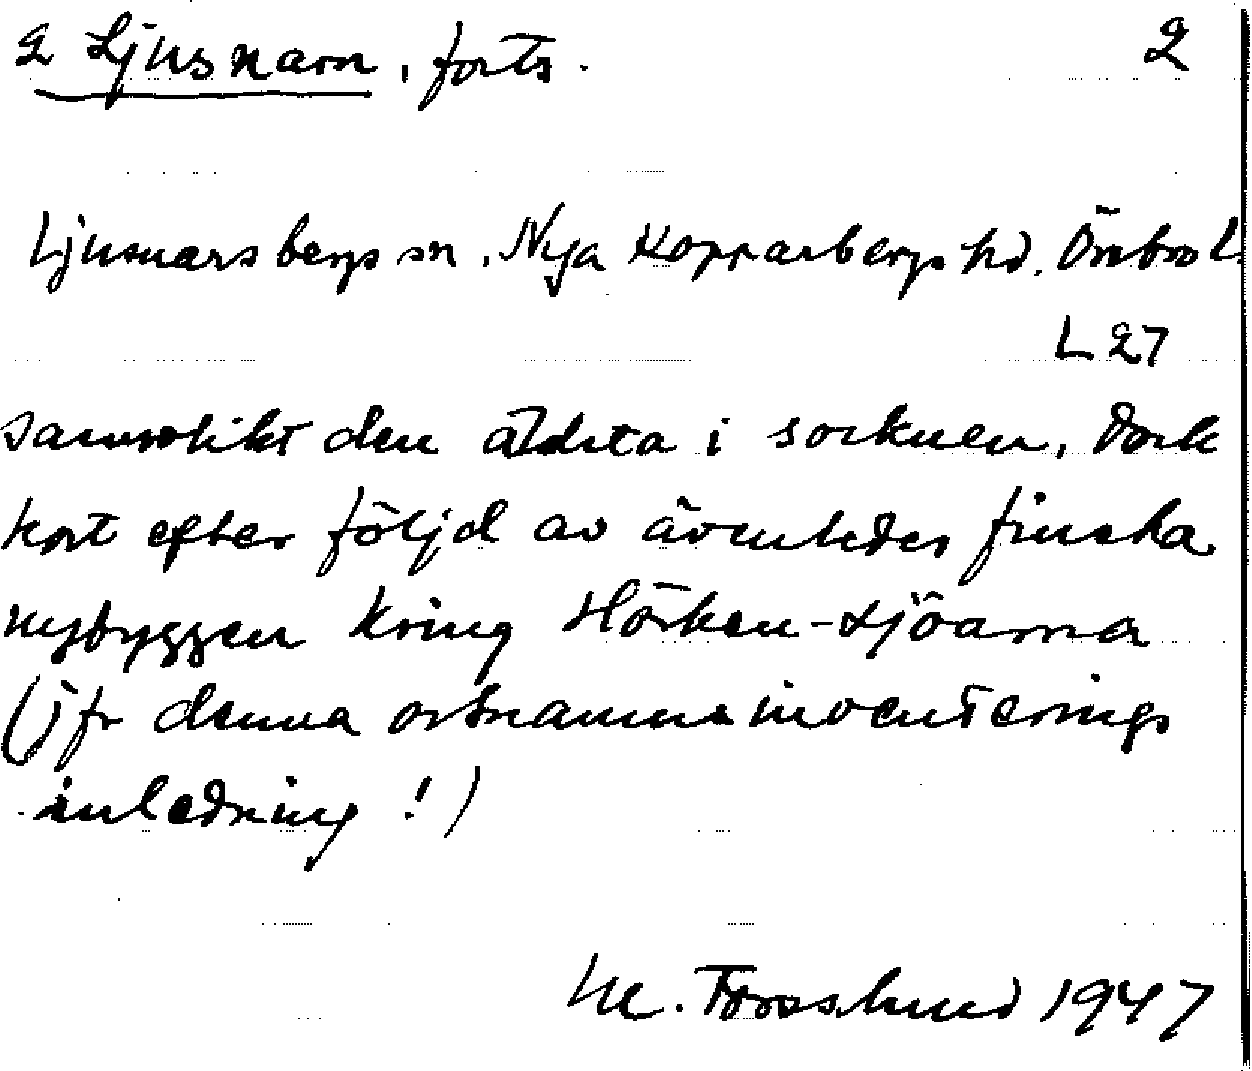 2 Ljusnarn, forts. 2
Ljusnarsbergs sn, Nya Kopparbergs hd. Örebro L
L 27
sannolikt den äldsta i socknen, dock
kort efter följd av ävenledes finska
nybyggen kring Hörken-sjöarna
(jfr denna ortnamnsinventerings
inledning!)
M. Forsslund 1947